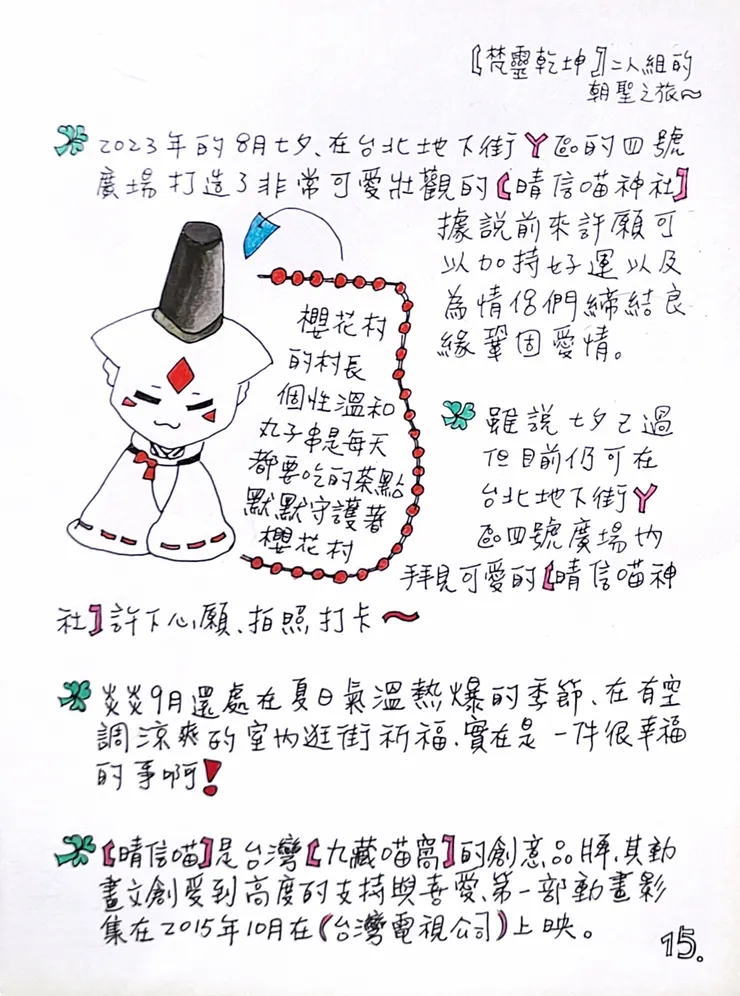 【梵靈乾坤】二人組的
朝聖之旅～
2023年的8月七夕、在台北地下街Y區的四號
廣場打造了非常可愛壯觀的【晴信喵神社】
據說前來許願可
以加持好運以及
為情侶們締結良
緣鞏固愛情。
櫻花村
的村長
個性溫和
丸子串是每天
都要吃的茶點
默默守護著
櫻花村
雖說七夕已過
但目前仍可在
台北地下街Y
區四號廣場內
拜見可愛的【晴信喵神
社】許下心願、拍照打卡～
炎炎9月還處在夏日氣溫熱爆的季節、在有空
調涼爽的室內逛街祈福、實在是一件很幸福
的事啊!
【晴信喵】是台灣【九藏喵窩】的創意品牌、其動
畫文創受到高度的支持與喜愛、第一部動畫影
集在2015年10月在(台灣電視公司)上映。
15。